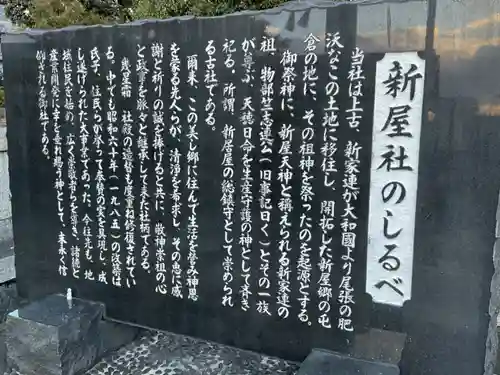 新屋社のしるべ
当社は上古、新家連が大和國より尾張の肥
沃なこの土地に移住し、開拓した新屋郷の屯
倉の地に、その祖神を祭ったのを起源とする。
御祭神に、新屋天神と称えられる新家連の
祖、物部竺志連公(旧事記曰く)とその一族
が尊ぶ、天穂日命を生産守護の神として斉き
祀る。所謂、新居屋の総鎮守として崇められ
る古社である。
爾来、この美し郷に住んで生活を営み神恩
を蒙る先人らが、清浄を希求し、その恩に感
謝と祈りの誠を捧げると共に、敬神崇祖の心
と政事を脈々と継承して来た社柄である。
幾星霜、社殿の造替も度重ね修復されてい
る。中でも昭和六十年(一九八五)の改築は
氏子、住民らが挙って奉賛の実を具現し、成
された大事業であった。今社光も、地
域住民を始め、広く衆